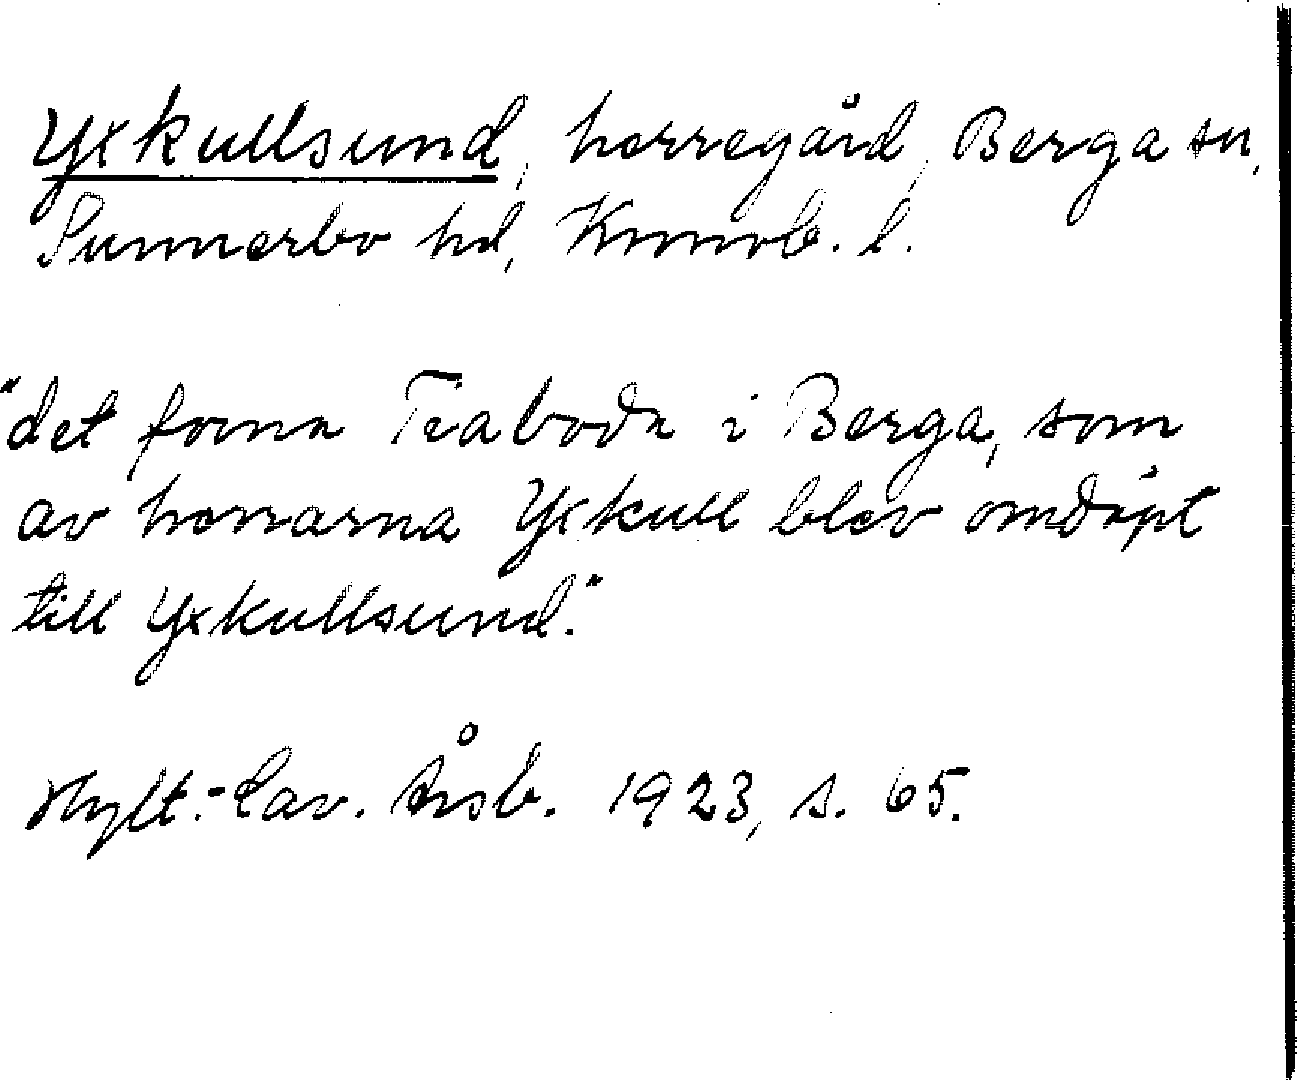 Yxkullsund, herregård, Berga sn,
Sunnerbo hd, Kronob. l.
"det forna Tiaboda i Berga, som
av herrarna Yxkull blev omdöpt
till Yxkullsund."
Hylt.-Cav. Årsb. 1923, s. 65.